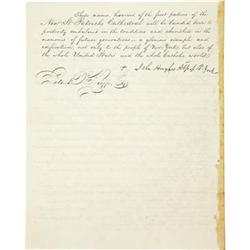 These names, however of the first patrons of the
New St. Patrick's Cathedral will be handed down to
posterity embalmed in the traditions and cherished in the
memories of future generations — a glorious example and
edification, not only to the people of New York but also of
the whole United States and the whole Catholic world.
+ John Hughes Abp. N. York